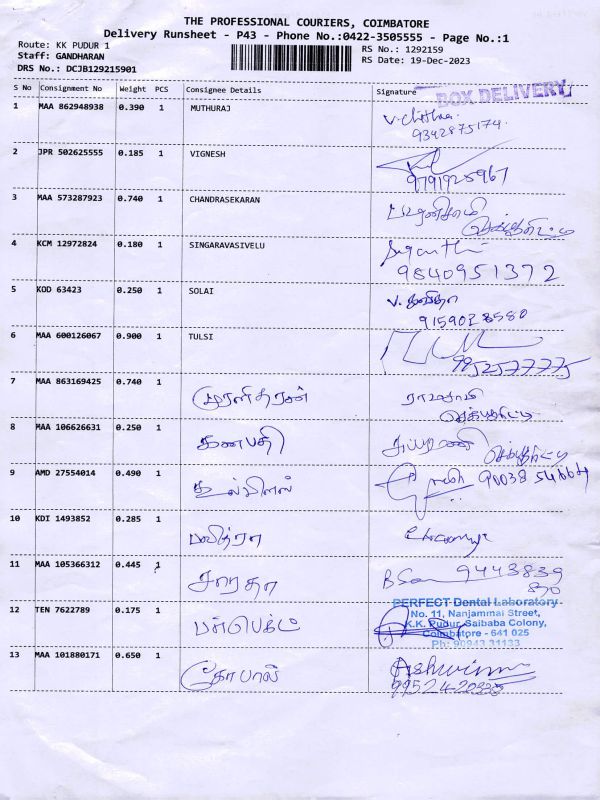 THE PROFESSIONAL COURIERS, COIMBATORE
Delivery Runsheet - P43 - Phone No.:0422-3505555 - Page No.:1
Route: KK PUDUR 1
RS No.: 1292159
Staff: GANDHARAN
RS Date: 19-Dec-2023
DRS No.: DCJB129215901
BOX DELIVERY
S No Consignment No Weight PCS Consignee Details Signature
1 MAA 862948938 0.390 1 MUTHURAJ
9342875174
2 JPR 502625555 0.185 1 VIGNESH
9791925967
3 MAA 573287923 0.740 1 CHANDRASEKARAN பழனிசாமி
செக்யூரிட்டி
4 KCM 12972824 0.180 1 SINGARAVASIVELU
9840951372
5 KOD 63423 0.250 1 SOLAI V. கவிதா
9159028580
6 MAA 600126067 0.900 1 TULSI
9952577775
7 MAA 863169425 0.740 1 முரளிதரன் ராமசாமி
செக்யூரிட்டி
8 MAA 106626631 0.250 1 கணபதி செக்யூரிட்டி
9 AMD 27554014 0.490 1 90038 54664
10 KDI 1493852 0.285 1 பவித்ரா
11 MAA 105366312 0.445 1 சாரதா 9443839
890
PERFECT Dental Laboratory
No. 11, Nanjammai Street,
12 TEN 7622789 0.175 1 பர்பெக்ட் K.K. Pudur, Saibaba Colony,
Coimbatore - 641 025
Ph: 90943 31133
13 MAA 101880171 0.650 1 கோபால் Ashwin
99524-20338